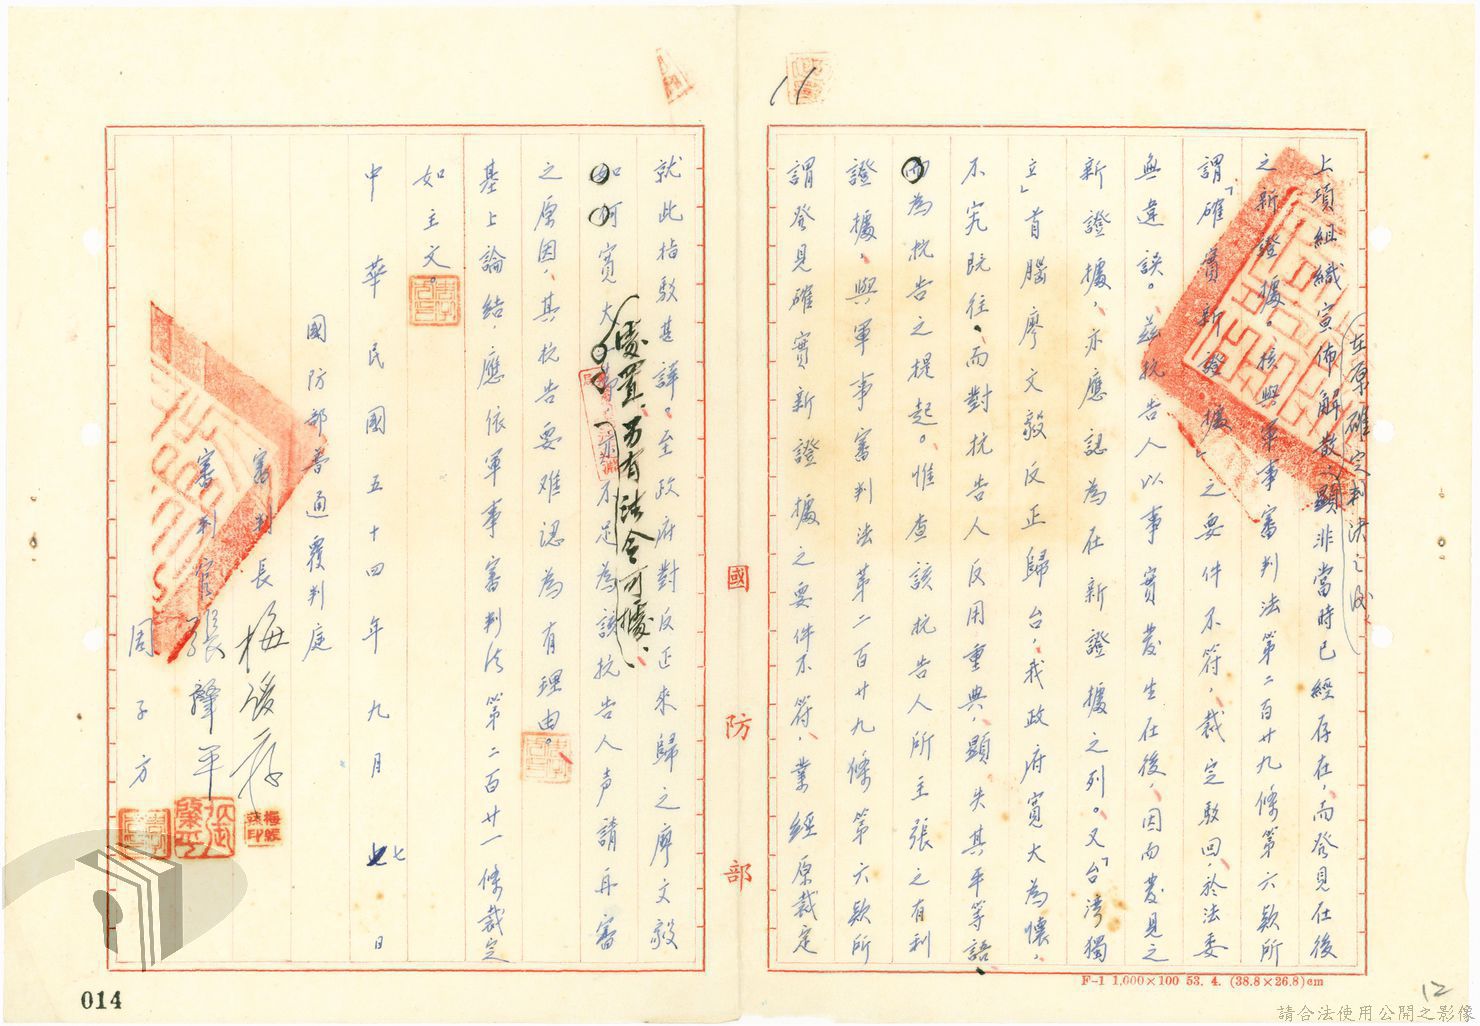 11
上項組織宣佈解散，顯非當時已經存在，而發見在後
在原確定判決之後
之新證據。核與軍事審判法第二百廿九條第六款所
謂「確實新證據」之要件不符，裁定駁回，於法委
無違誤。茲抗告人以事實發生在後，因而發見之
新證據，亦應認為在新證據之列。又「台灣獨
立」首腦廖文毅反正歸台，我政府寬大為懷，
不究既往，而對抗告人反用重典，顯失其平等語，
為抗告之提起。惟查該抗告人所主張之有利
證據，與軍事審判法第二百廿九條第六款所
謂發見確實新證據之要件不符，業經原裁定
國防部
F-1 1,000×100 53. 4. (38.8×26.8)cm
12
就此指駁甚詳。至政府對反正來歸之廖文毅
如何寬大
處置，另有法令可據，
不足為該抗告人声請再審
之原因，其抗告要难認為有理由。
基上論結，應依軍事審判法第二百廿一條裁定
如主文。
中華民國五十四年九月七日
國防部普通覆判庭
審判長梅
審判官張肇平
周子方
014
請合法使用公開之影像